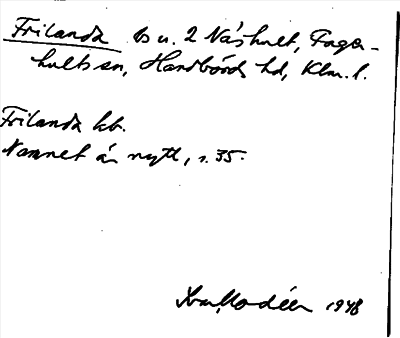 Frilanda b u. 2 Näshult, Fager-
hults sn, Handbörds hd, Klm. l.
Frilanda kb.
Namnet är nytt, s. 35.
Ivar Modéer 1948